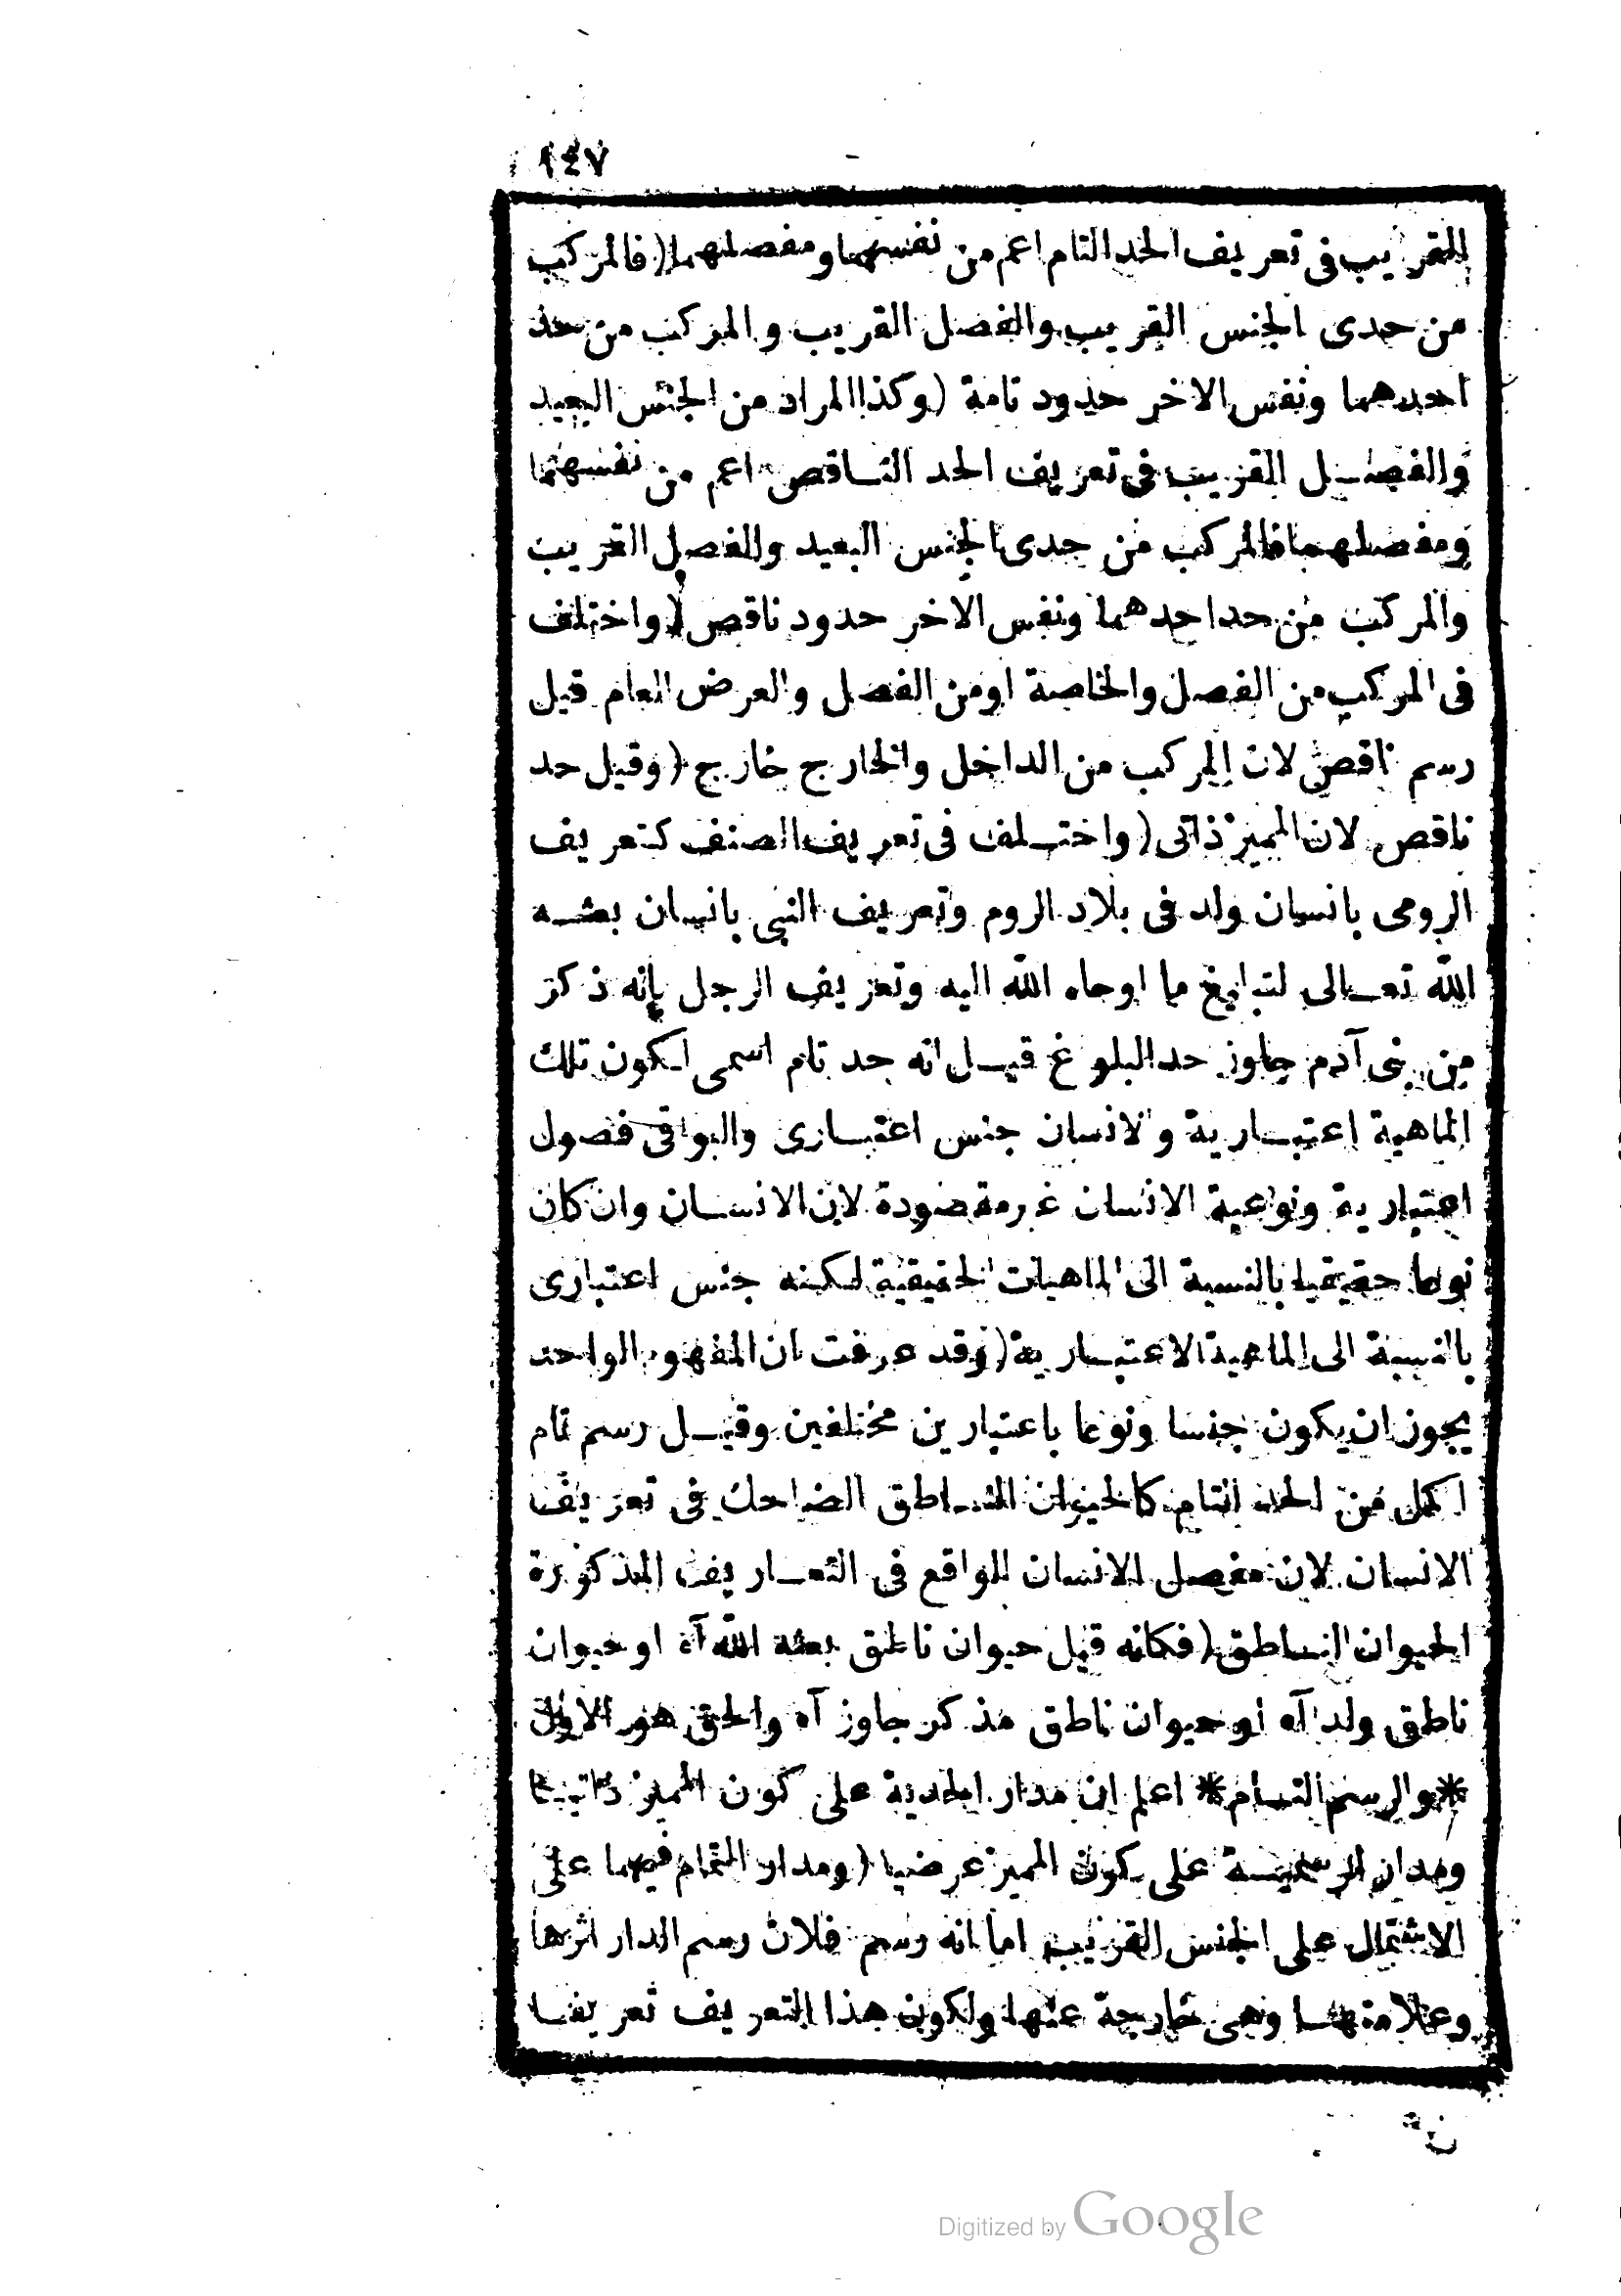 ١٤٧
القريب فى تعريف الحد التام اعم من نفسهما ومفصلهما (فالمركب
من حدى الجنس القريب والفصل القريب والمركب من حد
احدهما ونفس الاخر حدود تامة (وكذا المراد من الجنس البعيد
والفصل القريب فى تعريف الحد الناقص اعم من نفسهما
ومفصلهما فالمركب من حدى الجنس البعيد والفصل القريب
والمركب من حد احدهما ونفس الاخر حدود ناقص (واختلف
فى المركب من الفصل والخاصة او من الفصل والعرض العام قيل
رسم ناقص لان المركب من الداخل والخارج خارج (وقيل حد
ناقص لان المميز ذاتى (واختلف فى تعريف الصنف كتعريف
الرومى بانسان ولد فى بلاد الروم وتعريف النبى بانسان بعثه
الله تعالى لتبليغ ما اوحاه الله اليه وتعريف الرجل بانه ذكر
من بنى آدم جاوز حد البلوغ قيل انه حد تام اسمى لكون تلك
الماهية اعتبارية والانسان جنس اعتبارى والبواقى فصول
اعتبارية ونوعية الانسان غير مقصودة لان الانسان وان كان
نوعا حقيقيا بالنسبة الى الماهيات الحقيقية لكنه جنس اعتبارى
بالنسبة الى الماهية الاعتبارية (وقد عرفت ان المفهوم الواحد
يجوز ان يكون جنسا ونوعا باعتبارين مختلفين وقيل رسم تام
اكمل من الحد التام كالحيوان الناطق الضاحك فى تعريف
الانسان لان مفصل الانسان الواقع فى التعاريف المذكورة
الحيوان الناطق (فكانه قيل حيوان ناطق بعثه الله آه او حيوان
ناطق ولد آه او حيوان ناطق مذكر جاوز آه والحق هو الاول
*والرسم التام* اعلم ان مدار الحدية على كون المميز ذاتيا
ومدار الرسمية على كون المميز عرضيا (ومدار التمام فيهما على
الاشتمال على الجنس القريب اما انه رسم فلان رسم الدار اثرها
وعلامتها وهى خارجة عنها ولكون هذا التعريف تعريفا
Digitized by Google